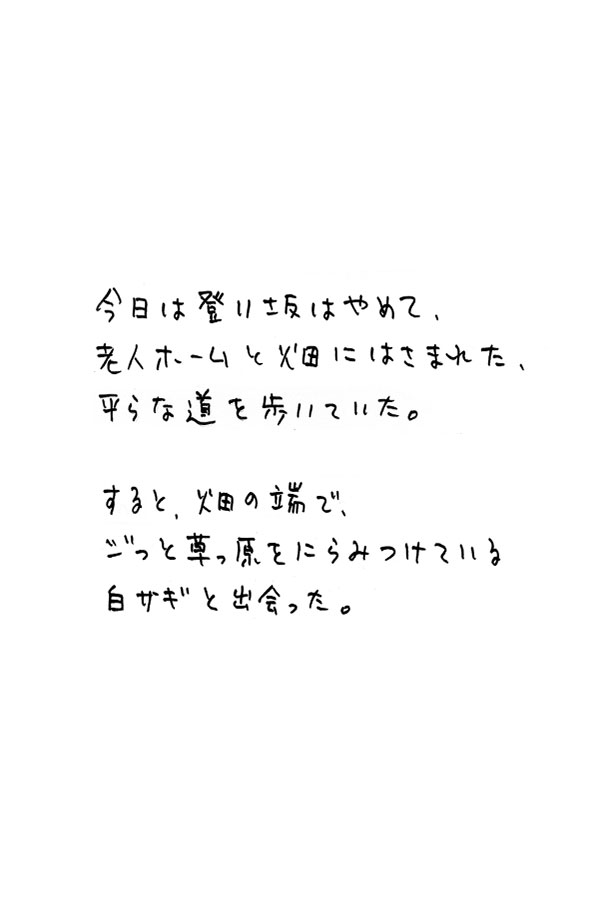 今日は登り坂はやめて、
老人ホームと畑にはさまれた、
平らな道を歩いていた。
すると、畑の端で、
じっと草っ原をにらみつけている
白サギと出会った。